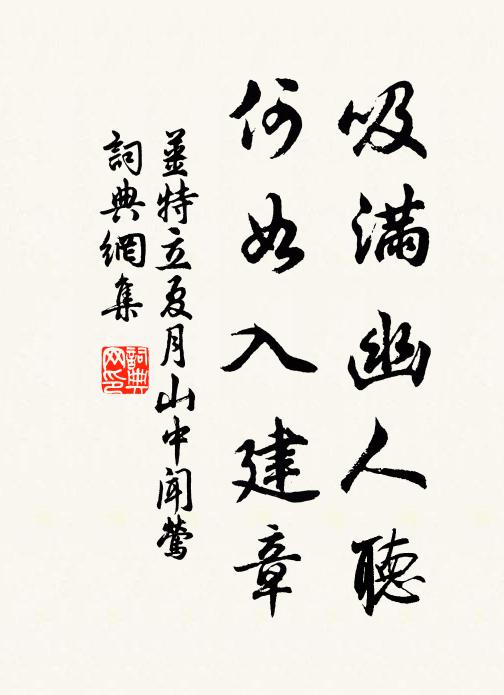 吸满幽人聽
何如入建章
姜特立夏月山中聞鶯
詞典網集
詞典网印